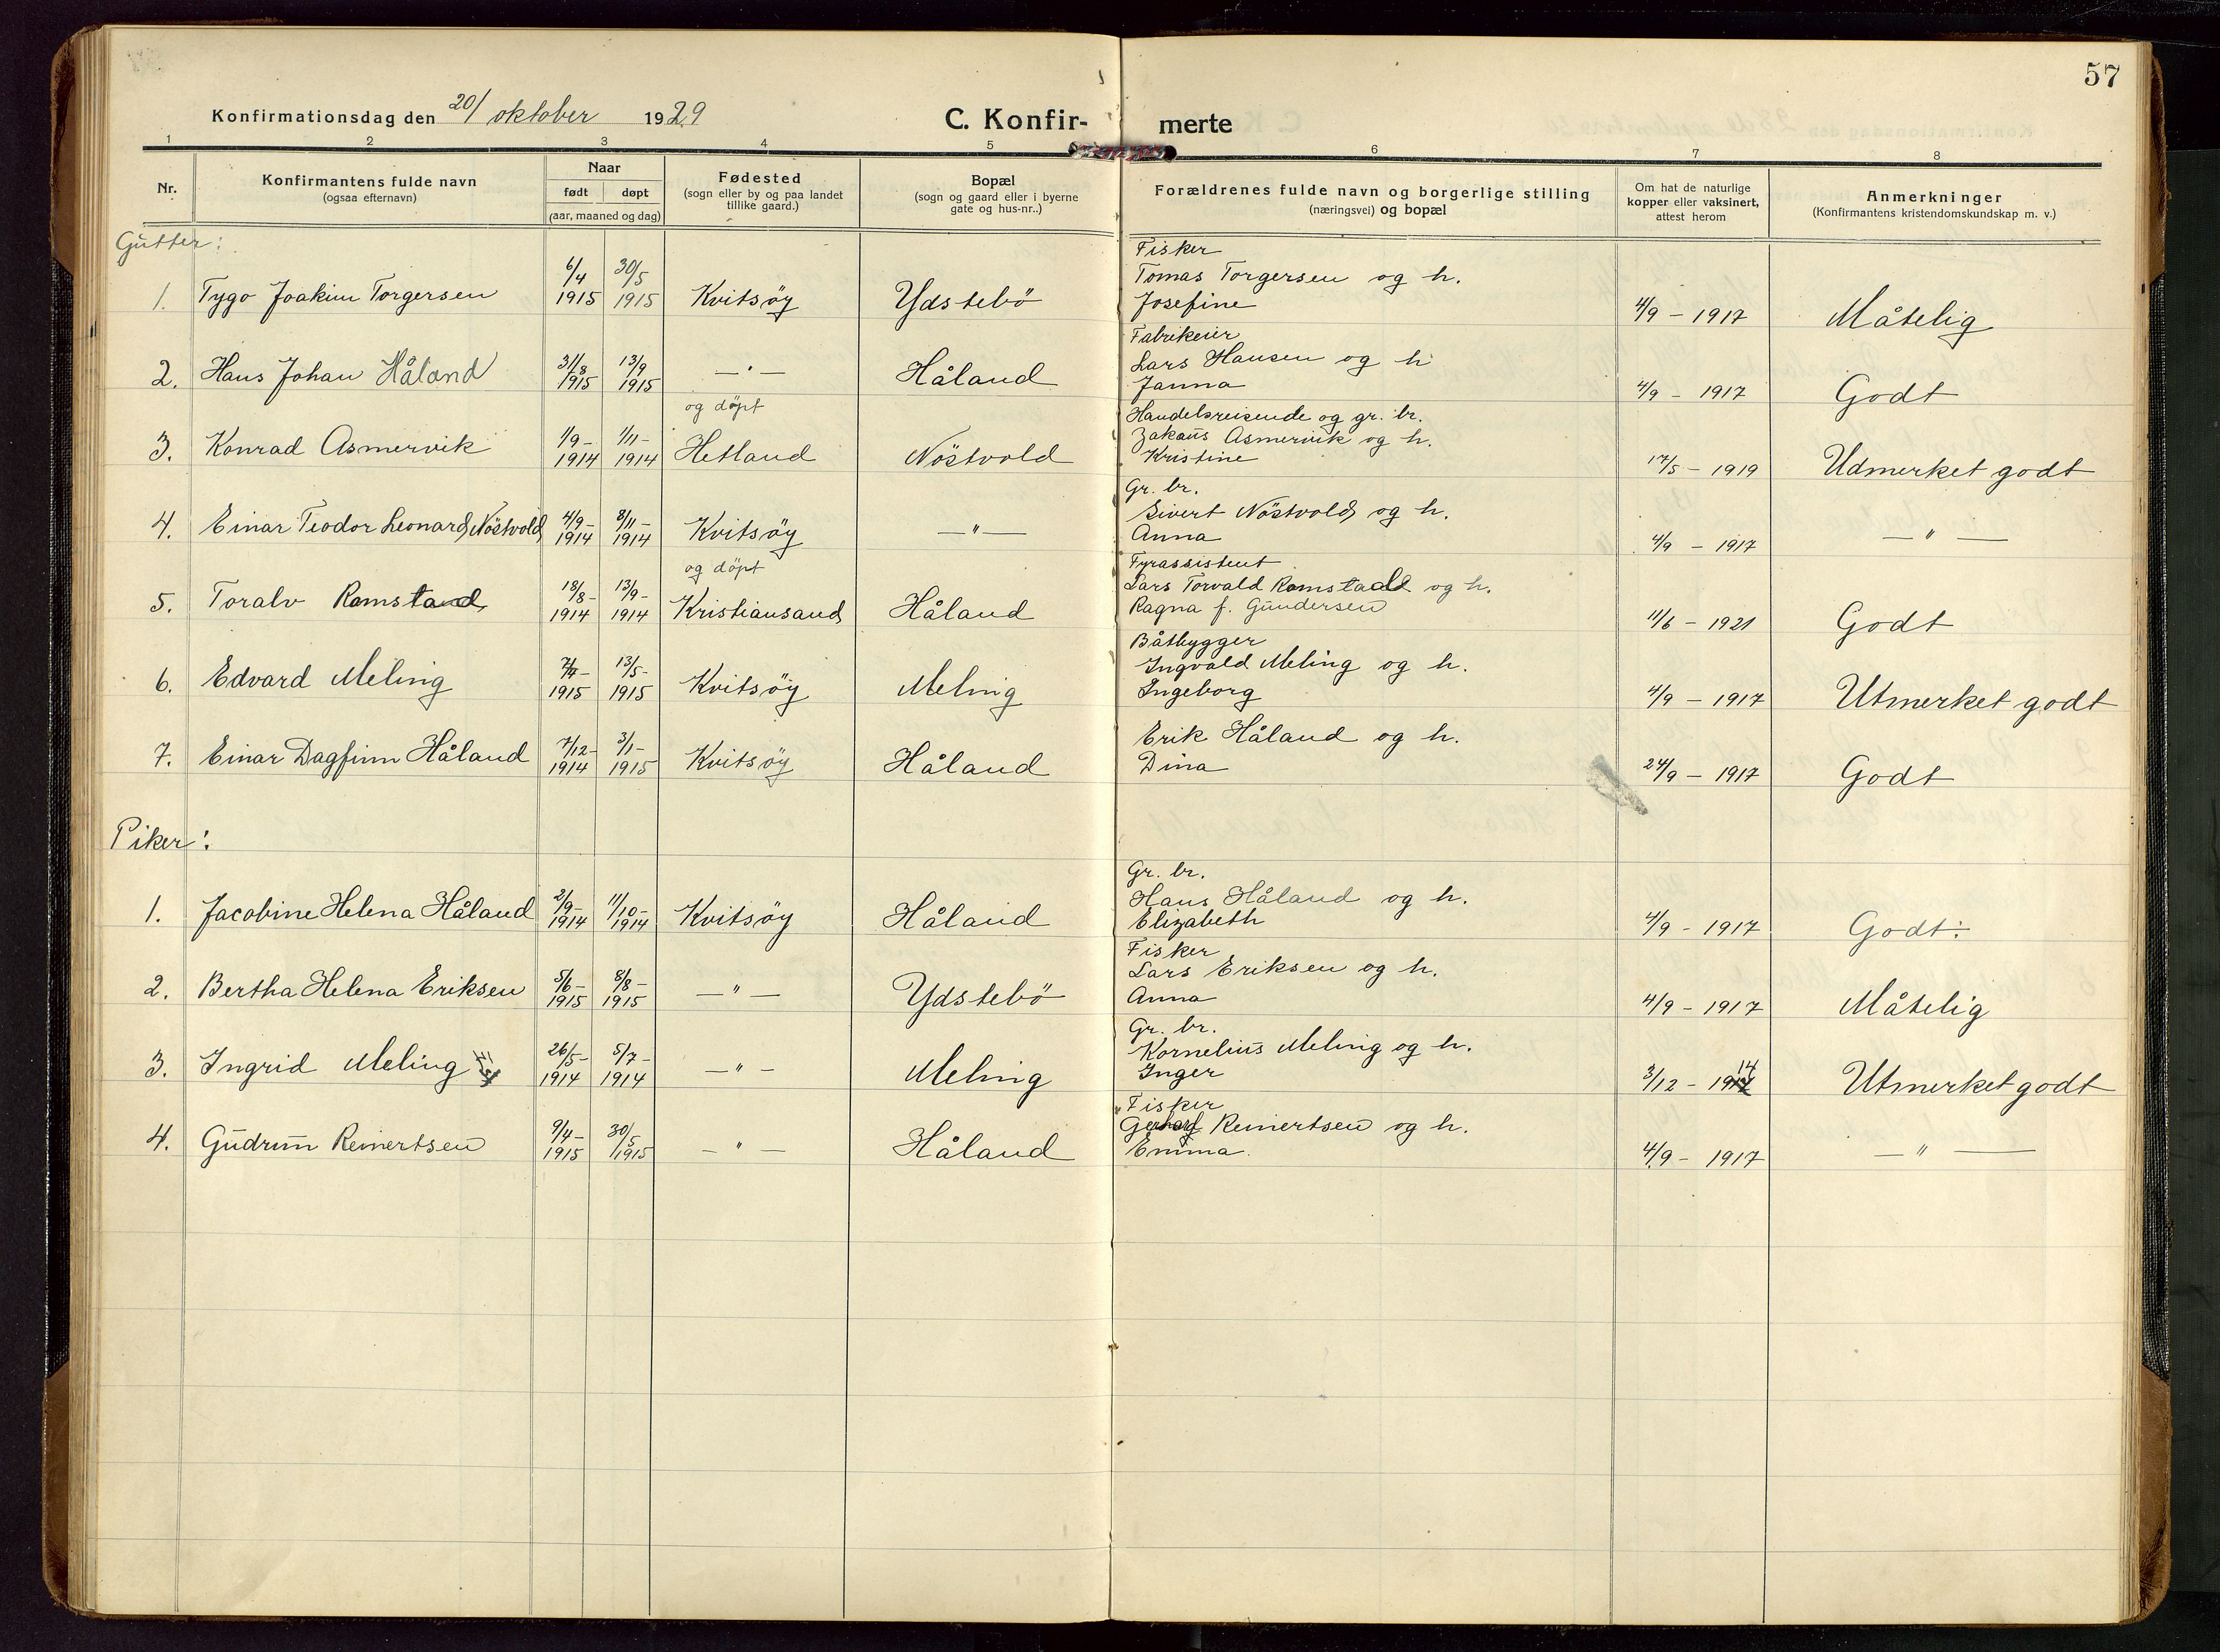 57
Konfirmationsdag den 20/ oktober 1929
C. Konfir- merte
1 2 3 4 5 6 7 8
Nr.
Konfirmantens fulde navn
(ogsaa efternavn)
Naar
født døpt
(aar, maaned og dag)
Fødested
(sogn eller by og paa landet
tillike gaard.)
Bopæl
(sogn og gaard eller i byerne
gate og hus-nr..)
Forældrenes fulde navn og borgerlige stilling
(næringsvei) og bopæl
Om hat de naturlige
kopper eller vaksinert,
attest herom
Anmerkninger
(Konfirmantens kristendomskundskap m. v.)
Gutter:
Fisker
6/4 30/5 Tomas Torgersen og h.
1. Tygo Joakim Torgersen 1915 1915 Kvitsöy Ydstebö Josefine 4/9 - 1917 Måtelig
Fabrikeier
31/8 13/9 Lars Hansen og h
2. Hans Johan Håland 1915 1915 — " — Håland Janna 4/9 - 1917 Godt
og döpt Handelsreisende og gr. br.
1/9- 1/11- Zakaus Asmervik og h.
3. Konrad Asmervik 1914 1914 Hetland Nöstvold Kristine 17/5 - 1919 Udmerket godt
Gr. br.
4/9- 8/11- Sivert Nöstvold og h.
4. Einar Teodor Leonard Nöstvold 1914 1914 Kvitsöy — " — Anna 4/9 - 1917 — " —
og döpt Fyrassistent
18/8- 13/9- Lars Torvald Ramstad og h.
5. Toralv Ramstad 1914 1914 Kristiansand Håland Ragna f. Gundersen 11/6 - 1921 Godt
Båtbygger
13/5- Ingvald Meling og h.
6. Edvard Meling 1915 1915 Kvitsöy Meling Ingeborg 4/9 - 1917 Utmerket godt
7/12- 3/1- Erik Håland og h.
7. Einar Dagfinn Håland 1914 1915 Kvitsöy Håland Dina 24/9 - 1917 Godt
Piker:
Gr. br.
2/9- 11/10- Hans Håland og h.
1. Jacobine Helena Håland 1914 1914 Kvitsöy Håland Elizabeth 4/9 - 1917 Godt÷
Fisker
5/6- 8/8- Lars Eriksen og h.
2. Bertha Helena Eriksen 1915 1915 — " — Ydstebö Anna 4/9 - 1917 Måtelig
Gr. br.
26/5- 5/7- Kornelius Meling og h.
3. Ingrid Meling 1914 1914 — " — Meling Inger 3/12 - 1914 Utmerket godt
Fisker
9/4- 30/5 Gerhard Reinertsen og h.
4. Gudrun Reinertsen 1915 1915 — " — Håland Emma. 4/9 - 1917 — " —